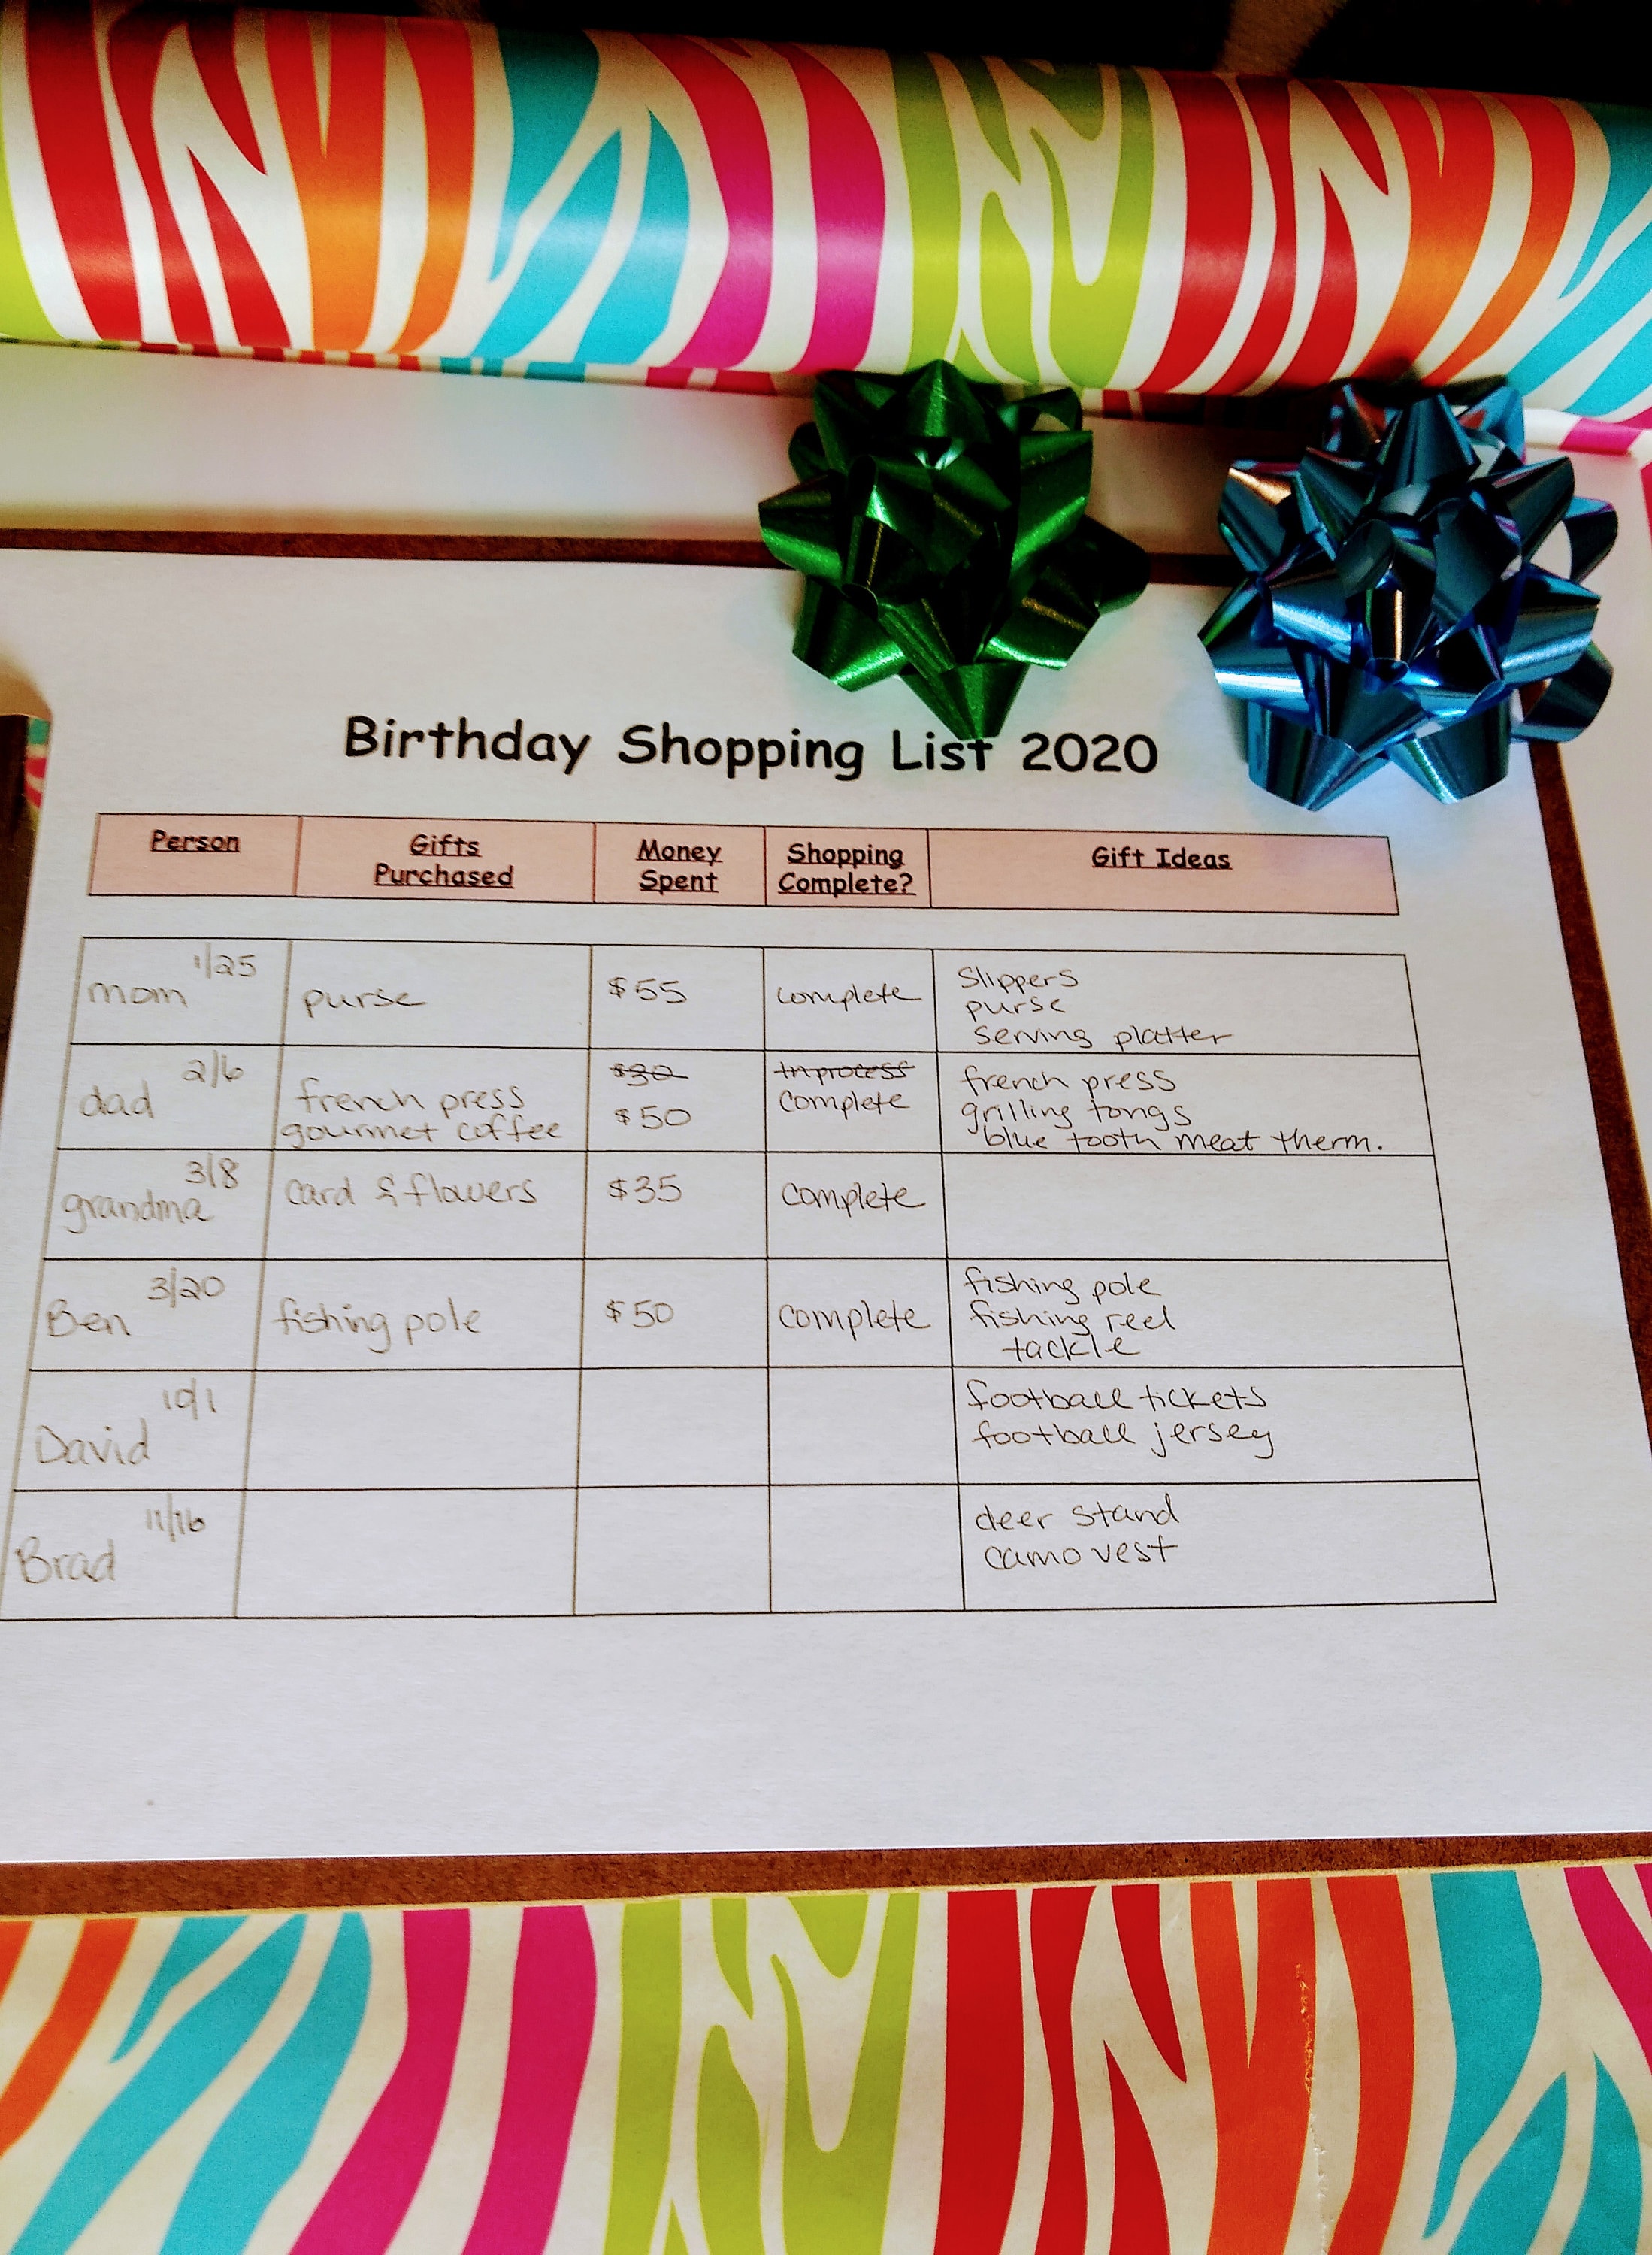 Birthday Shopping List 2020
Person
Gifts
Purchased
Money
Spent
Shopping
Complete?
Gift Ideas
1/25
mom
purse
$55
complete
Slippers
purse
serving platter
2/6
dad
french press
gourmet coffee
$30
$50
In process
complete
french press
grilling tongs
blue tooth meat therm.
3/8
grandma
card & flowers
$35
complete
3/20
Ben
fishing pole
$50
complete
fishing pole
fishing reel
tackle
10/1
David
football tickets
football jersey
11/16
Brad
deer stand
camo vest